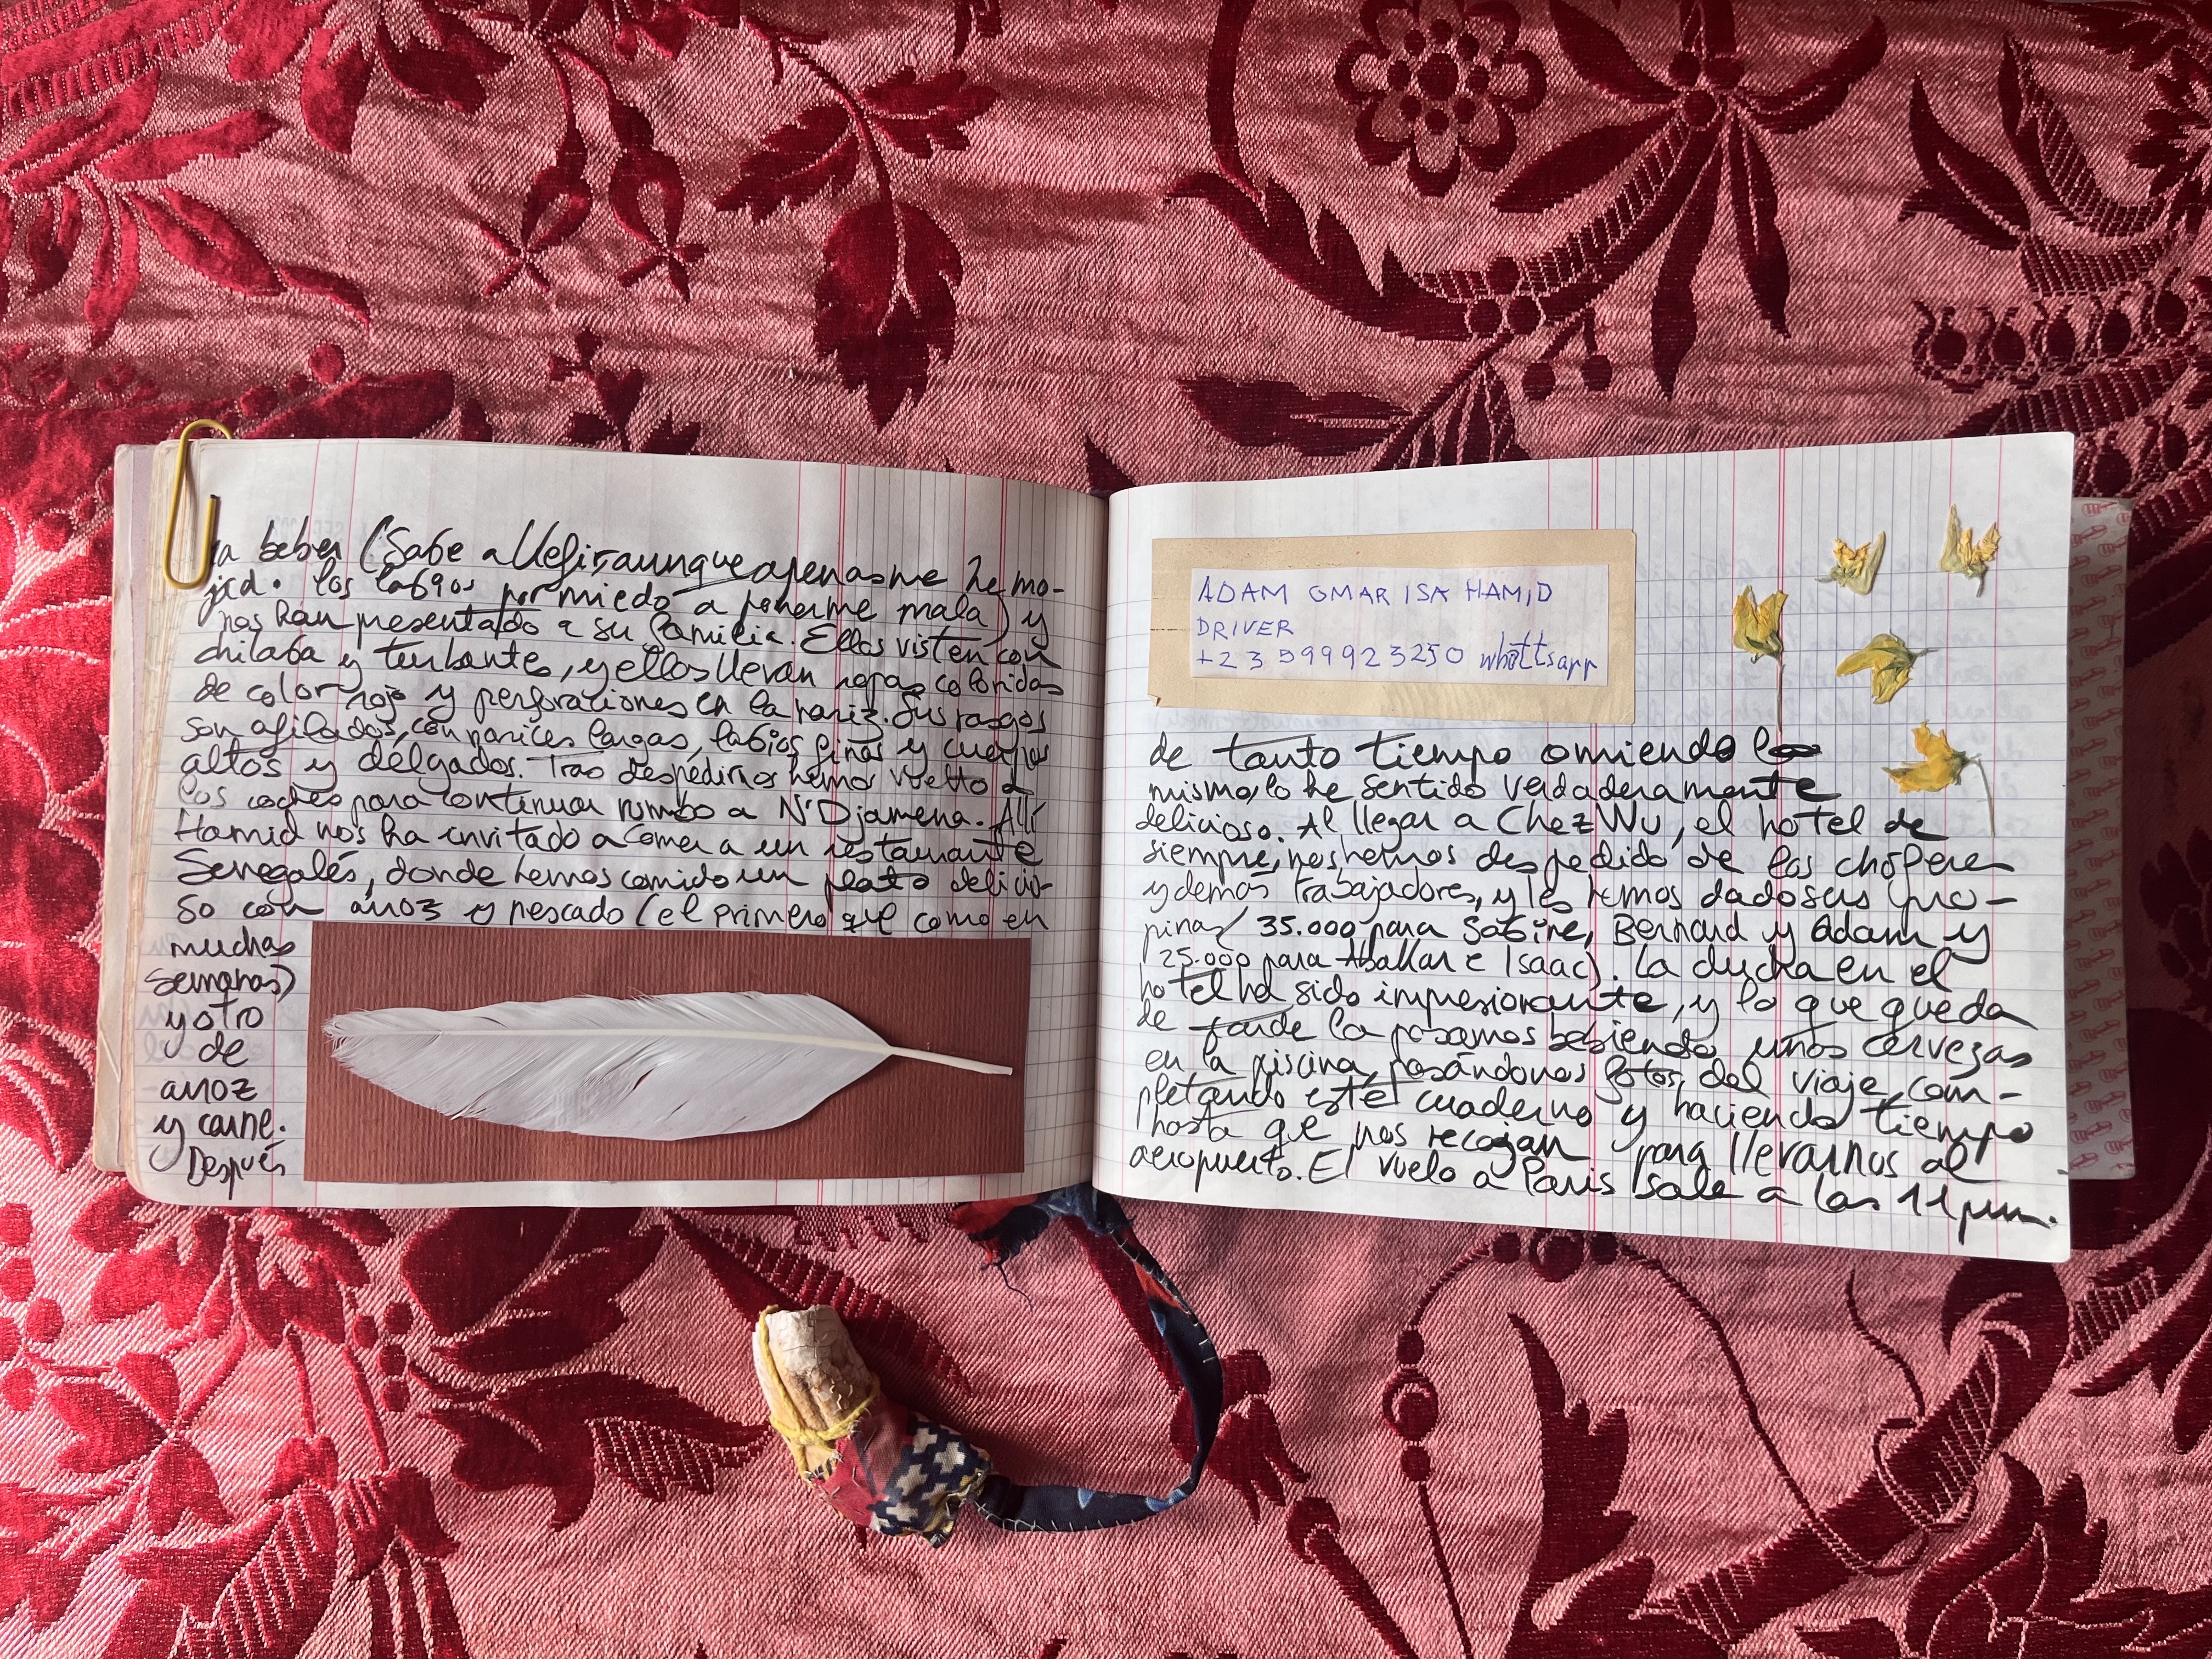 a beber (Sabe a Kefir, aunque apenas me he mo-
jado los labios por miedo a ponerme mala) y
nos han presentado a su familia. Ellas visten con
chilaba y turbante, y ellos llevan ropas coloridas
de color rojo y perforaciones en la nariz. Sus rasgos
son afilados, con narices largas, labios finos y cuerpos
altos y delgados. Tras despedirnos hemos vuelto a
los coches para continuar rumbo a N'Djamena. Allí
Hamid nos ha invitado a comer a un restaurante
Senegalés, donde hemos comido un plato delicio-
so con arroz y pescado (el primero que como en
muchas
semanas)
y otro
de
arroz
y carne.
Después
ADAM OMAR ISA HAMID
DRIVER
+23599923250 whattsapp
de tanto tiempo comiendo lo
mismo, lo he sentido verdaderamente
delicioso. Al llegar a Chez Wu, el hotel de
siempre, nos hemos despedido de los chóferes
y demás trabajadores, y les hemos dado sus pro-
pinas (35.000 para Sabine, Bernard y Adam y
25.000 para Abakar e Isaac). La ducha en el
hotel ha sido impresionante, y lo que queda
de tarde la pasamos bebiendo unas cervezas
en la piscina, pasándonos fotos del viaje, com-
pletando este cuaderno y haciendo tiempo
hasta que nos recojan para llevarnos al
aeropuerto. El vuelo a Paris sale a las 11 pm.